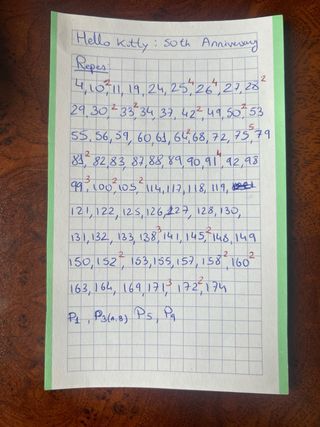 Hello Kitty: 50th Anniversary
Repes
4, 10², 11, 19, 24, 25⁴, 26⁴, 27, 28²
29, 30², 33², 34, 37, 42², 49, 50², 53
55, 56, 59, 60, 61, 64², 68, 72, 75⁵, 79
81², 82, 83, 87, 88, 89, 90, 91⁴, 92, 98
99³, 100², 105², 114, 117, 118, 119,
121, 122, 125, 126, 127, 128, 130,
131, 132, 133, 138³, 141, 145², 148, 149
150, 152², 153, 155, 157, 158², 160²
163, 164, 169, 171³, 172², 174
P1, P3(A,B) P5, P9